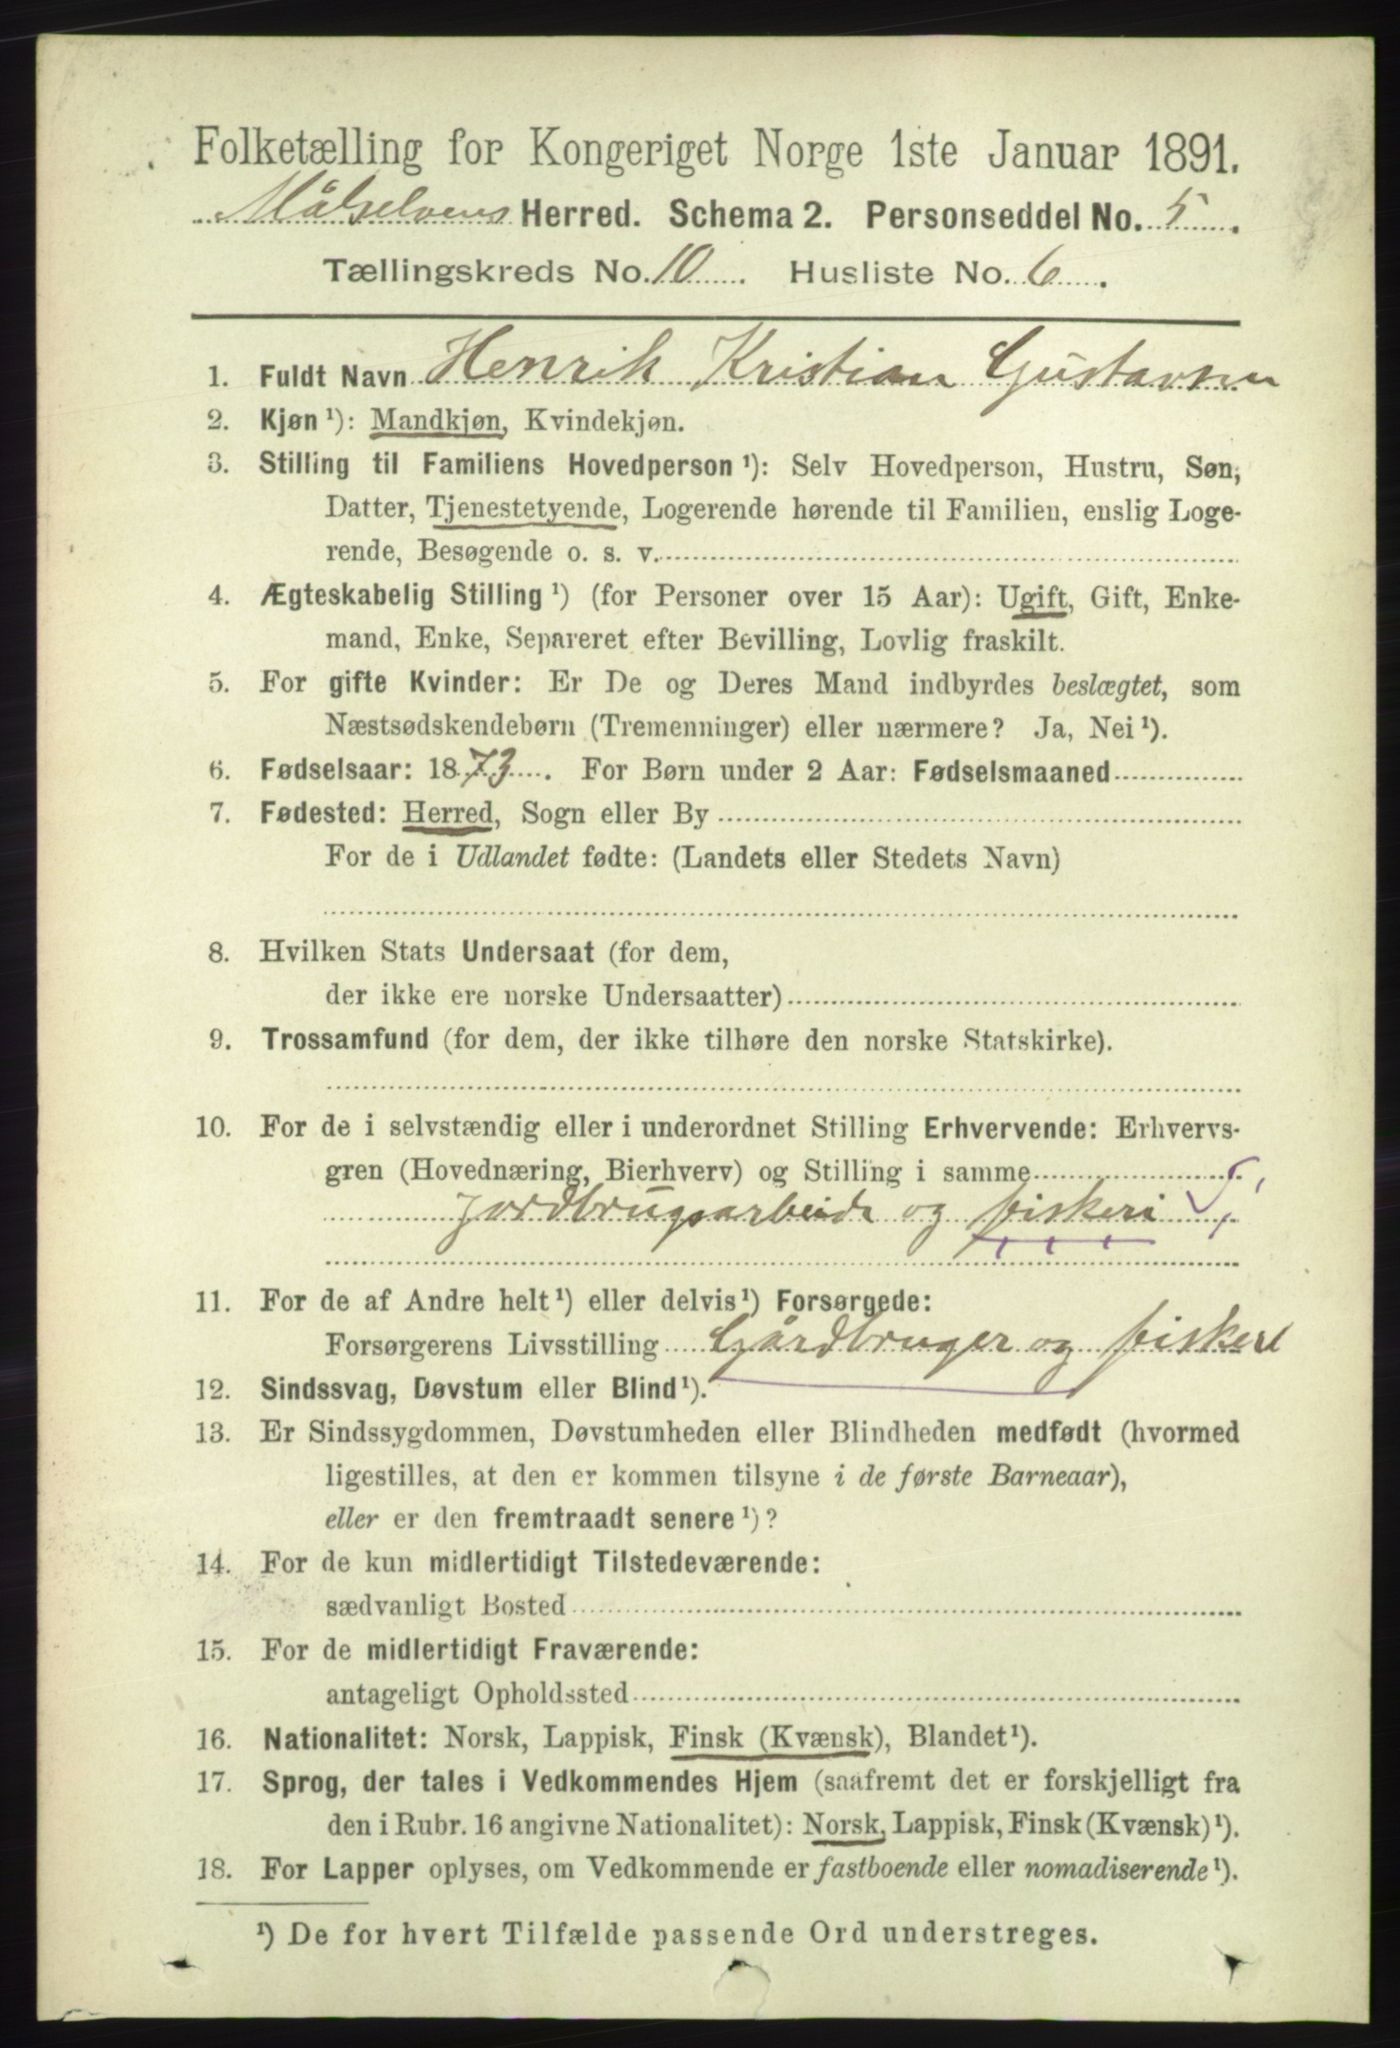 Folketælling for Kongeriget Norge 1ste Januar 1891.
Målselvens Herred. Schema 2. Personseddel No. 5.
Tællingskreds No. 10. Husliste No. 6.
1. Fuldt Navn Henrik Kristian Gustavsen
2. Kjøn¹): Mandkjøn, Kvindekjøn.
3. Stilling til Familiens Hovedperson¹): Selv Hovedperson, Hustru, Søn,
Datter, Tjenestetyende, Logerende hørende til Familien, enslig Loge-
rende, Besøgende o. s. v.
4. Ægteskabelig Stilling¹) (for Personer over 15 Aar): Ugift, Gift, Enke-
mand, Enke, Separeret efter Bevilling, Lovlig fraskilt.
5. For gifte Kvinder: Er De og Deres Mand indbyrdes beslægtet, som
Næstsødskendebørn (Tremenninger) eller nærmere? Ja, Nei¹).
6. Fødselsaar: 1873. For Børn under 2 Aar: Fødselsmaaned
7. Fødested: Herred, Sogn eller By
For de i Udlandet fødte: (Landets eller Stedets Navn)
8. Hvilken Stats Undersaat (for dem,
der ikke ere norske Undersaatter)
9. Trossamfund (for dem, der ikke tilhøre den norske Statskirke).
10. For de i selvstændig eller i underordnet Stilling Erhvervende: Erhvervs-
gren (Hovednæring, Bierhverv) og Stilling i samme
jordbrugsarbeide og fiskeri
11. For de af Andre helt¹) eller delvis¹) Forsørgede:
Forsørgerens Livsstilling Gårdbruger og fisker
12. Sindssvag, Døvstum eller Blind¹).
13. Er Sindssygdommen, Døvstumheden eller Blindheden medfødt (hvormed
ligestilles, at den er kommen tilsyne i de første Barneaar),
eller er den fremtraadt senere¹)?
14. For de kun midlertidigt Tilstedeværende:
sædvanligt Bosted
15. For de midlertidigt Fraværende:
antageligt Opholdssted
16. Nationalitet: Norsk, Lappisk, Finsk (Kvænsk), Blandet¹).
17. Sprog, der tales i Vedkommendes Hjem (saafremt det er forskjelligt fra
den i Rubr. 16 angivne Nationalitet): Norsk, Lappisk, Finsk (Kvænsk)¹).
18. For Lapper oplyses, om Vedkommende er fastboende eller nomadiserende¹).
¹) De for hvert Tilfælde passende Ord understreges.